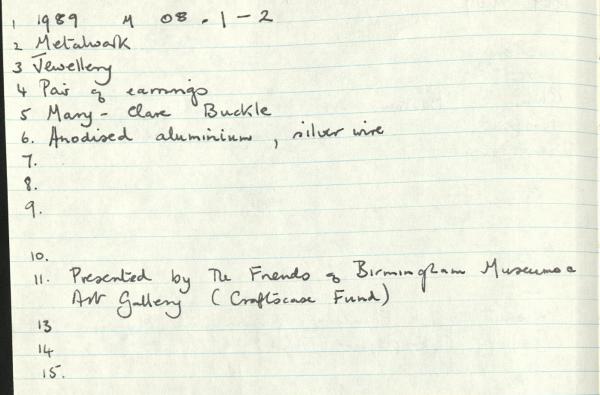 1 1989 M 08.1-2
2 Metalwork
3 Jewellery
4 Pair of earrings
5 Mary-Clare Buckle
6. Anodised aluminium, silver wire
7.
8.
9.
10.
11. Presented by The Friends of Birmingham Museums &
Art Gallery (Craftscase Fund)
13
14
15.